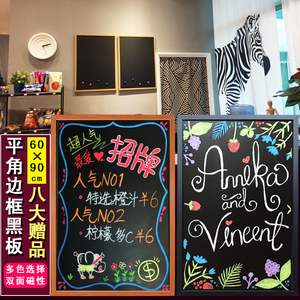 60×90cm
平角边框黑板
八大赠品
多色选择
双面磁性
超人气
最爱
招牌
人气NO1
特选橙汁¥6
人气NO2
柠檬多C¥6
Anneka
and
Vincent